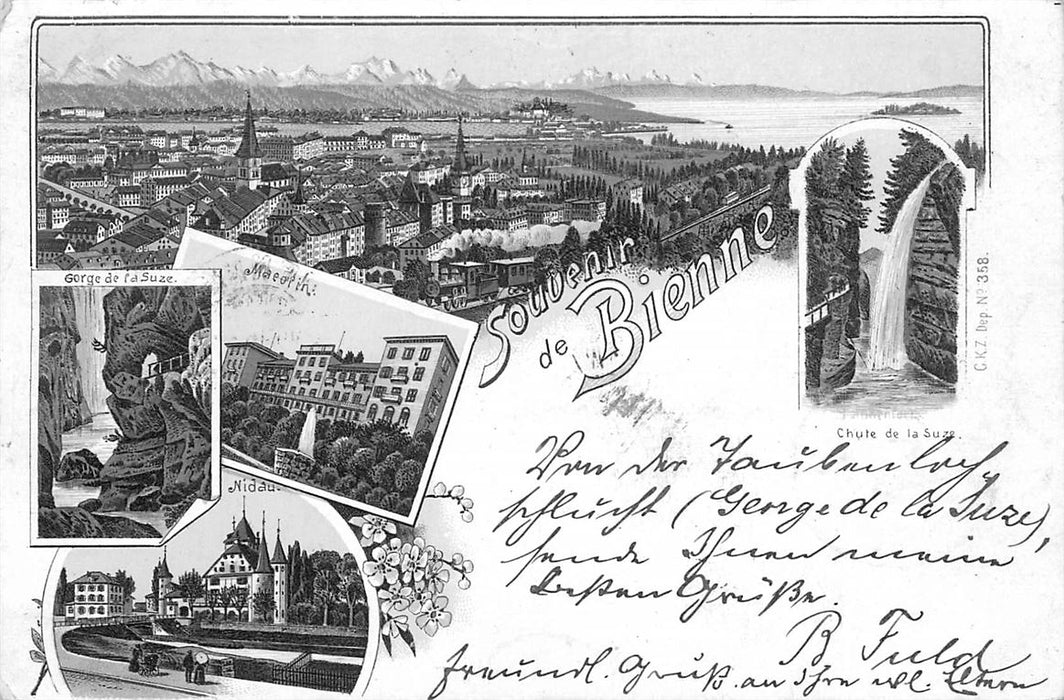 Gorge de la Suze.
Macolin.
Souvenir
de Bienne
C.K.Z. Dep. No 358.
Chute de la Suze.
Nidau.
Von der Taubenloch
schlucht (George de la Suze),
sende Ihnen meine
besten Grüße.
B Fuld
freundl. Gruß an Ihre wl. Eltern